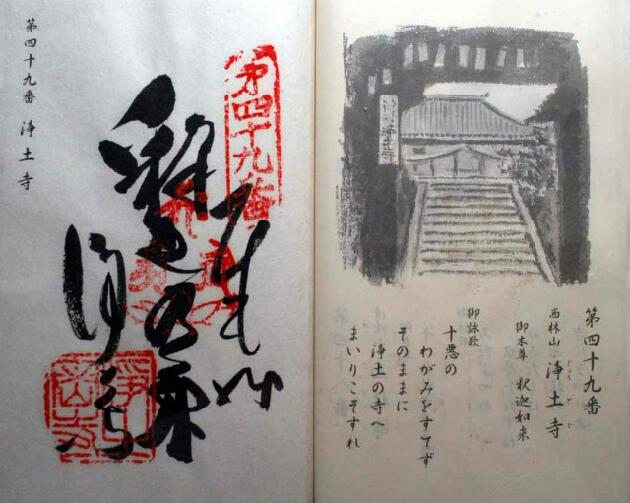 第四十九番 浄土寺
第四十九番
釈迦如来
浄土寺
第四十九番
西林山 浄土寺
じょうどじ
御本尊 釈迦如来
御詠歌
十悪の
わがみをすてず
そのままに
浄土の寺へ
まいりこそすれ